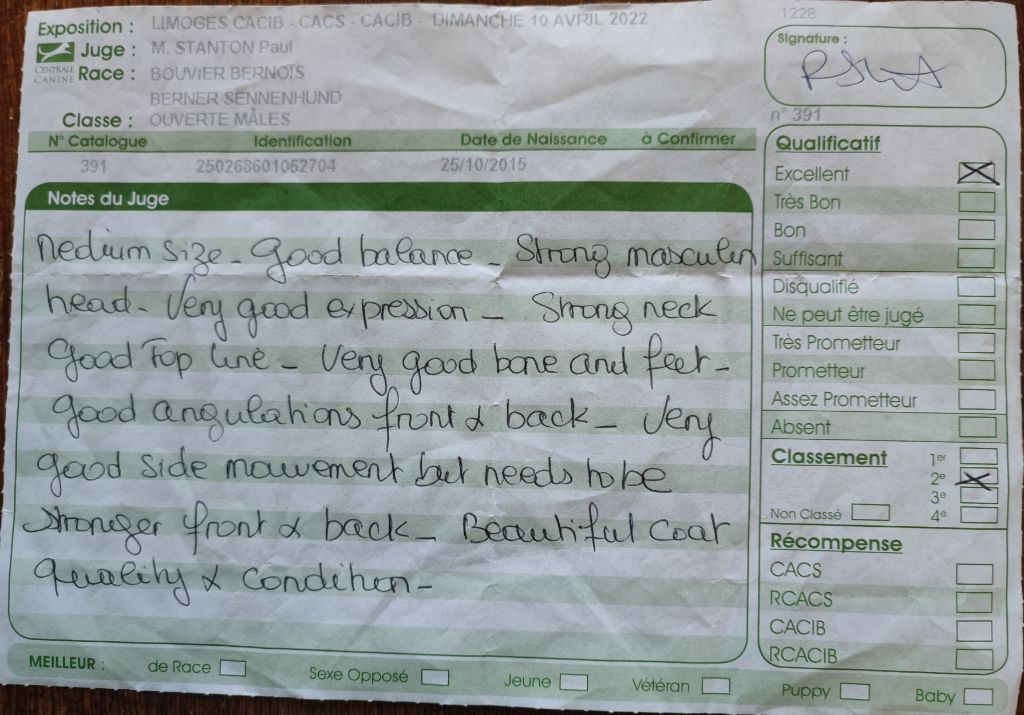 Exposition : LIMOGES CACIB - CACS - CACIB - DIMANCHE 10 AVRIL 2022
1228
CENTRALE CANINE
Juge : M. STANTON Paul
Signature :
Race : BOUVIER BERNOIS
BERNER SENNENHUND
Classe : OUVERTE MÂLES
n° 391
N° Catalogue Identification Date de Naissance à Confirmer
391 250268601052704 25/10/2015
Notes du Juge
Medium size - Good balance - Strong masculin
head - Very good expression - Strong neck
Good Top line - Very good bone and feet -
good angulations front & back - Very
good side mouvement but needs to be
stronger front & back - Beautiful coat
quality & condition -
Qualificatif
Excellent
Très Bon
Bon
Suffisant
Disqualifié
Ne peut être jugé
Très Prometteur
Prometteur
Assez Prometteur
Absent
Classement
1er
2e
3e
Non Classé 4e
Récompense
CACS
RCACS
CACIB
RCACIB
MEILLEUR : de Race Sexe Opposé Jeune Vétéran Puppy Baby